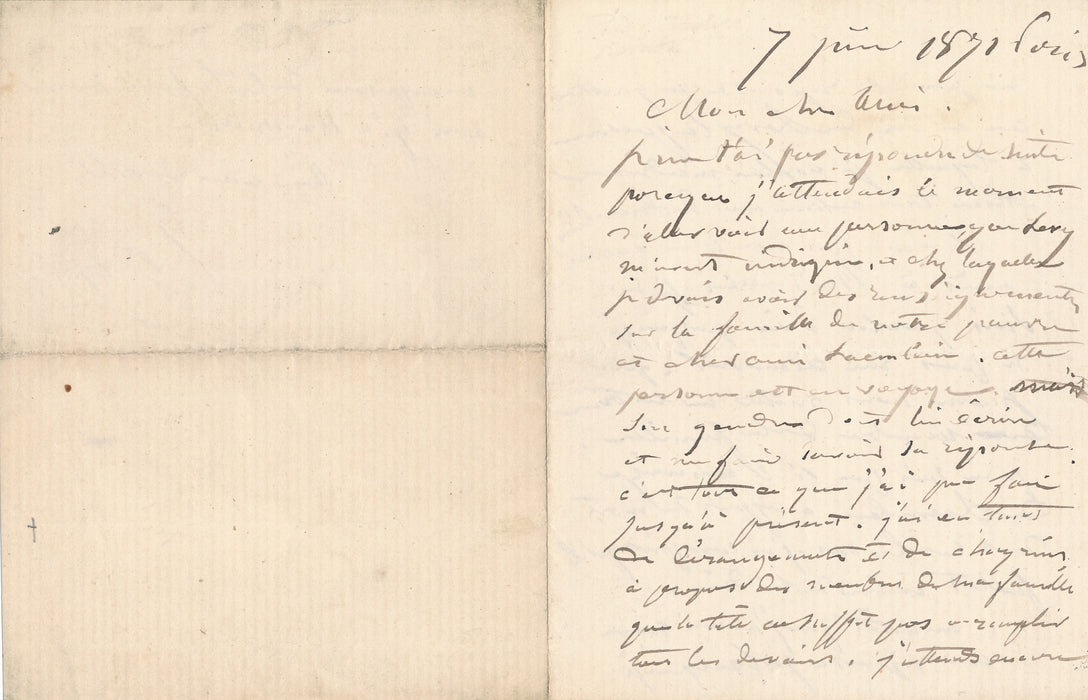 7 juin 1871 Paris
Mon cher Ami.
je ne t'ai pas répondu de suite
parceque j'attendais le moment
d'aller voir une personne, que Levy
m'avait indiquée, et chez laquelle
je devais avoir des renseignements
sur la famille de notre pauvre
et cher ami Laemlein. cette
personne est en voyage. mais
son gendre doit lui écrire
et me faire savoir sa réponse.
c'est tout ce que j'ai pu faire
jusqu'à présent. j'ai eu tant
de dérangements et de chagrins
à propos des membres de ma famille
que la tête ne suffit pas a remplir
tous les devoirs. j'attends encore